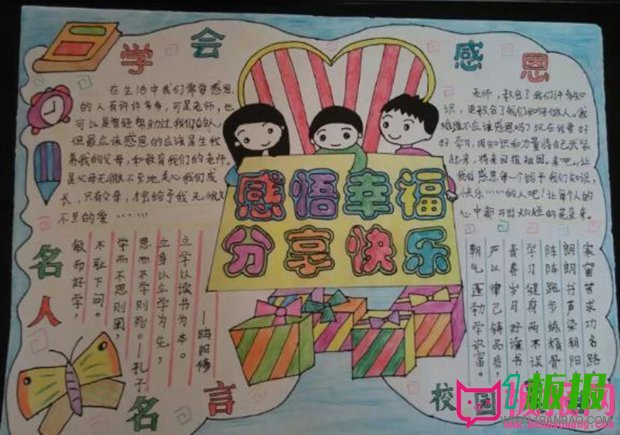 学会感恩
在生活中我们需要感恩
的人有许许多多,可是老师,也
可以是曾经帮助过我们的人,
但最应该感恩的应该是生我
养我的父母,和教育我们的老师。
是父母无微不至地关心我们成
长,只有父母,才会给予我无微
不至的爱……
老师,教会了我们许多知
识,更教会了我们如何做人。我
好学习,用知识和力量将自己武装
起来,将来回报祖国。来吧,让
我们感恩每一个给予我们知识,
快乐……的人吧!让每个人的
心中都开出灿烂的花朵来。
感悟幸福
分享快乐
名人名言
立学以读书为本。
立身以立学为先,
——欧阳修
思而不学则殆。——孔子
学而不思则罔,
不耻下问。
敏而好学,
校园
家富苦求功名路
朗朗书声染朝阳
阵阵跑步统精骨
学习健身两不误
青春岁月好读书
严以律己铸品质
朝气蓬勃学识富。
板报